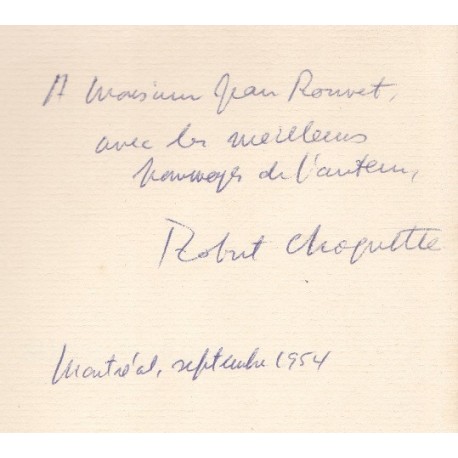 A Monsieur Jean Rouvet,
avec les meilleurs
hommages de l'auteur,
Robert Choquette
Montréal, septembre 1954